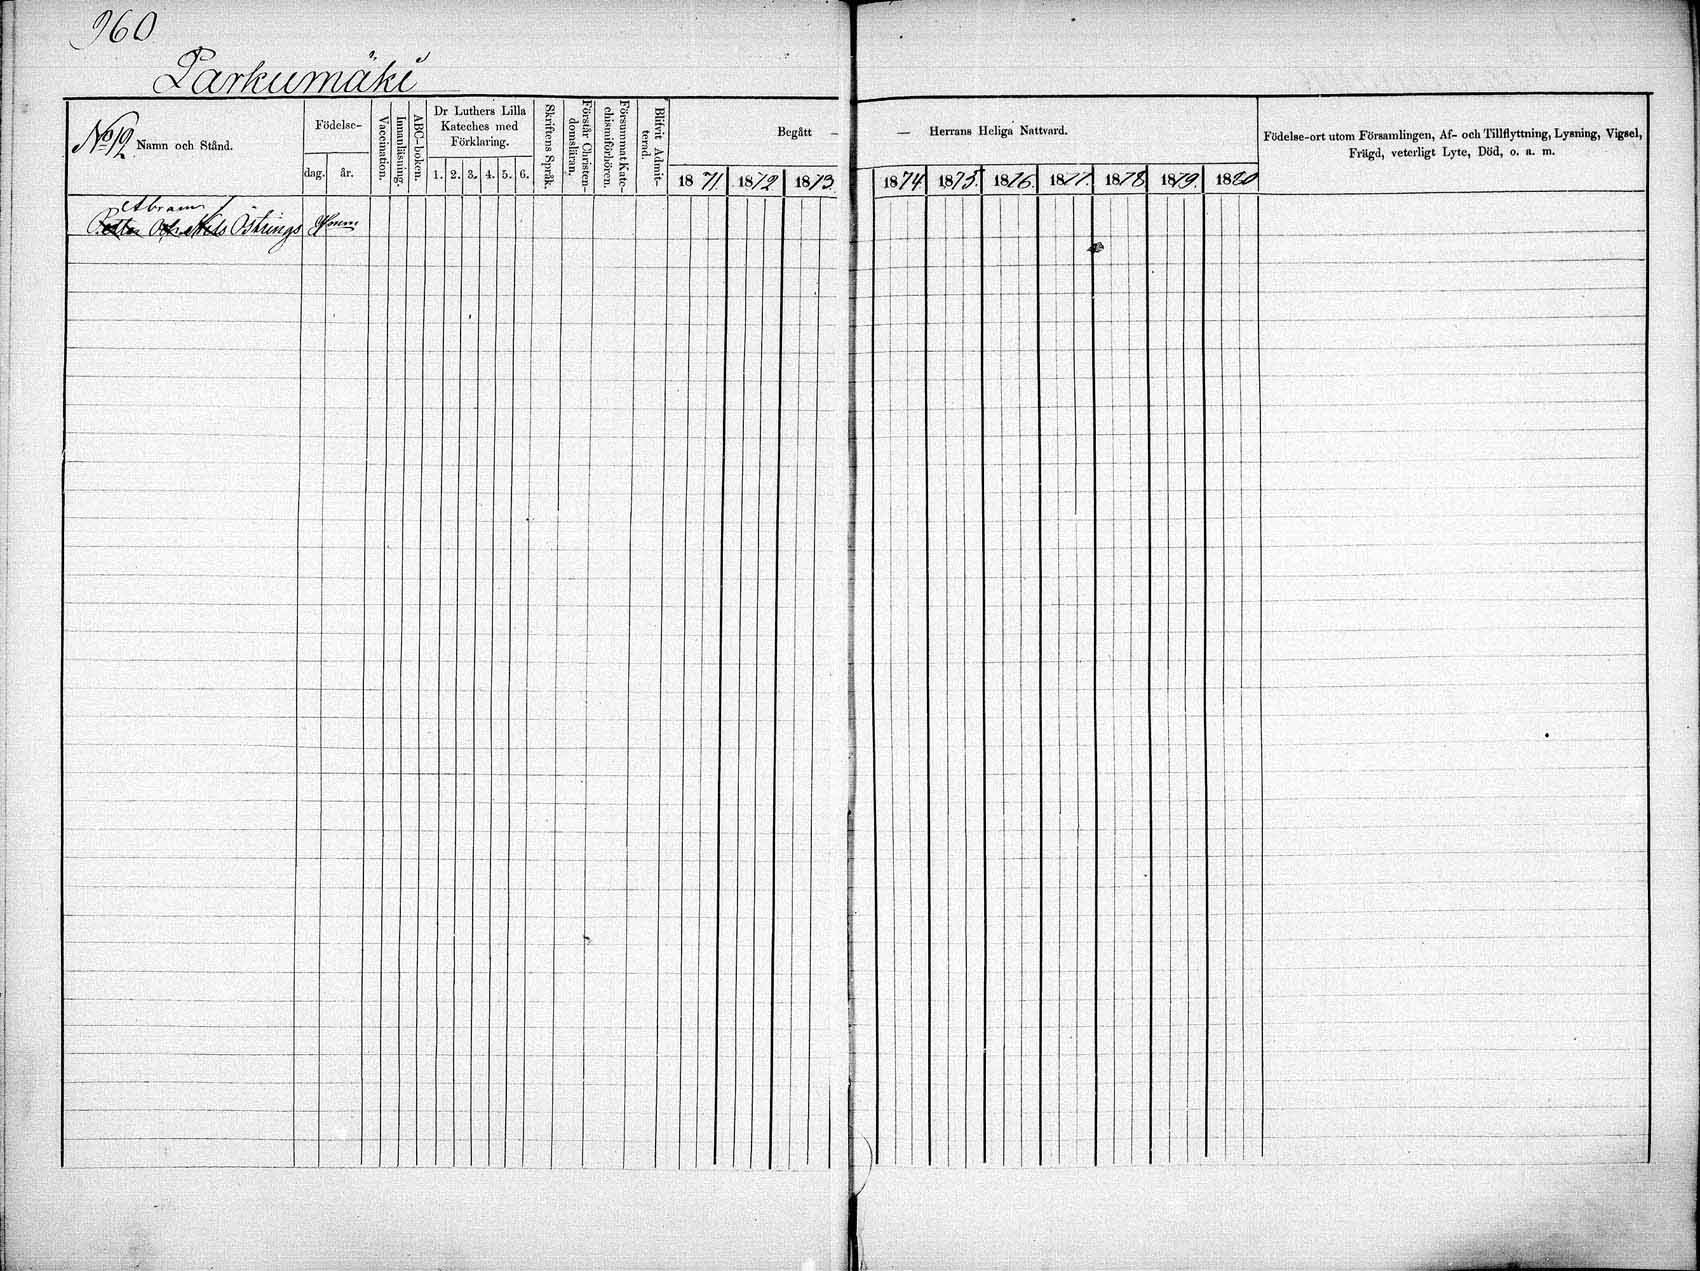 960
Parkumäki
No 12.
Namn och Stånd.
Födelse-
dag.
år.
Vaccination.
Innanläsning.
ABC-boken.
Dr Luthers Lilla
Kateches med
Förklaring.
1. 2. 3. 4. 5. 6.
Skriftens Språk.
Förstår Christen-
domsläran.
Försummat Kate-
chismiförhören.
Blifvit Admit-
terad.
Begått —
1871. 1872 1873.
— Herrans Heliga Nattvard.
1874. 1875. 1876. 1877. 1878 1879. 1880
Födelse-ort utom Församlingen, Af- och Tillflyttning, Lysning, Vigsel,
Frägd, veterligt Lyte, Död, o. a. m.
Abram
Petter och Nils Östrings